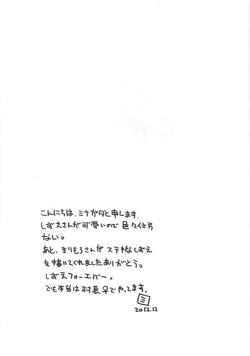 こんにちは、ミナガタと申します。
しずえさんが可愛いので色々仕方
ない。
あと、まりもろうさんが ステキなしずえ
を描いてくれましたありがとう。
しずえフォーエバー。
でも本当は村長早でやってます。
2012.12